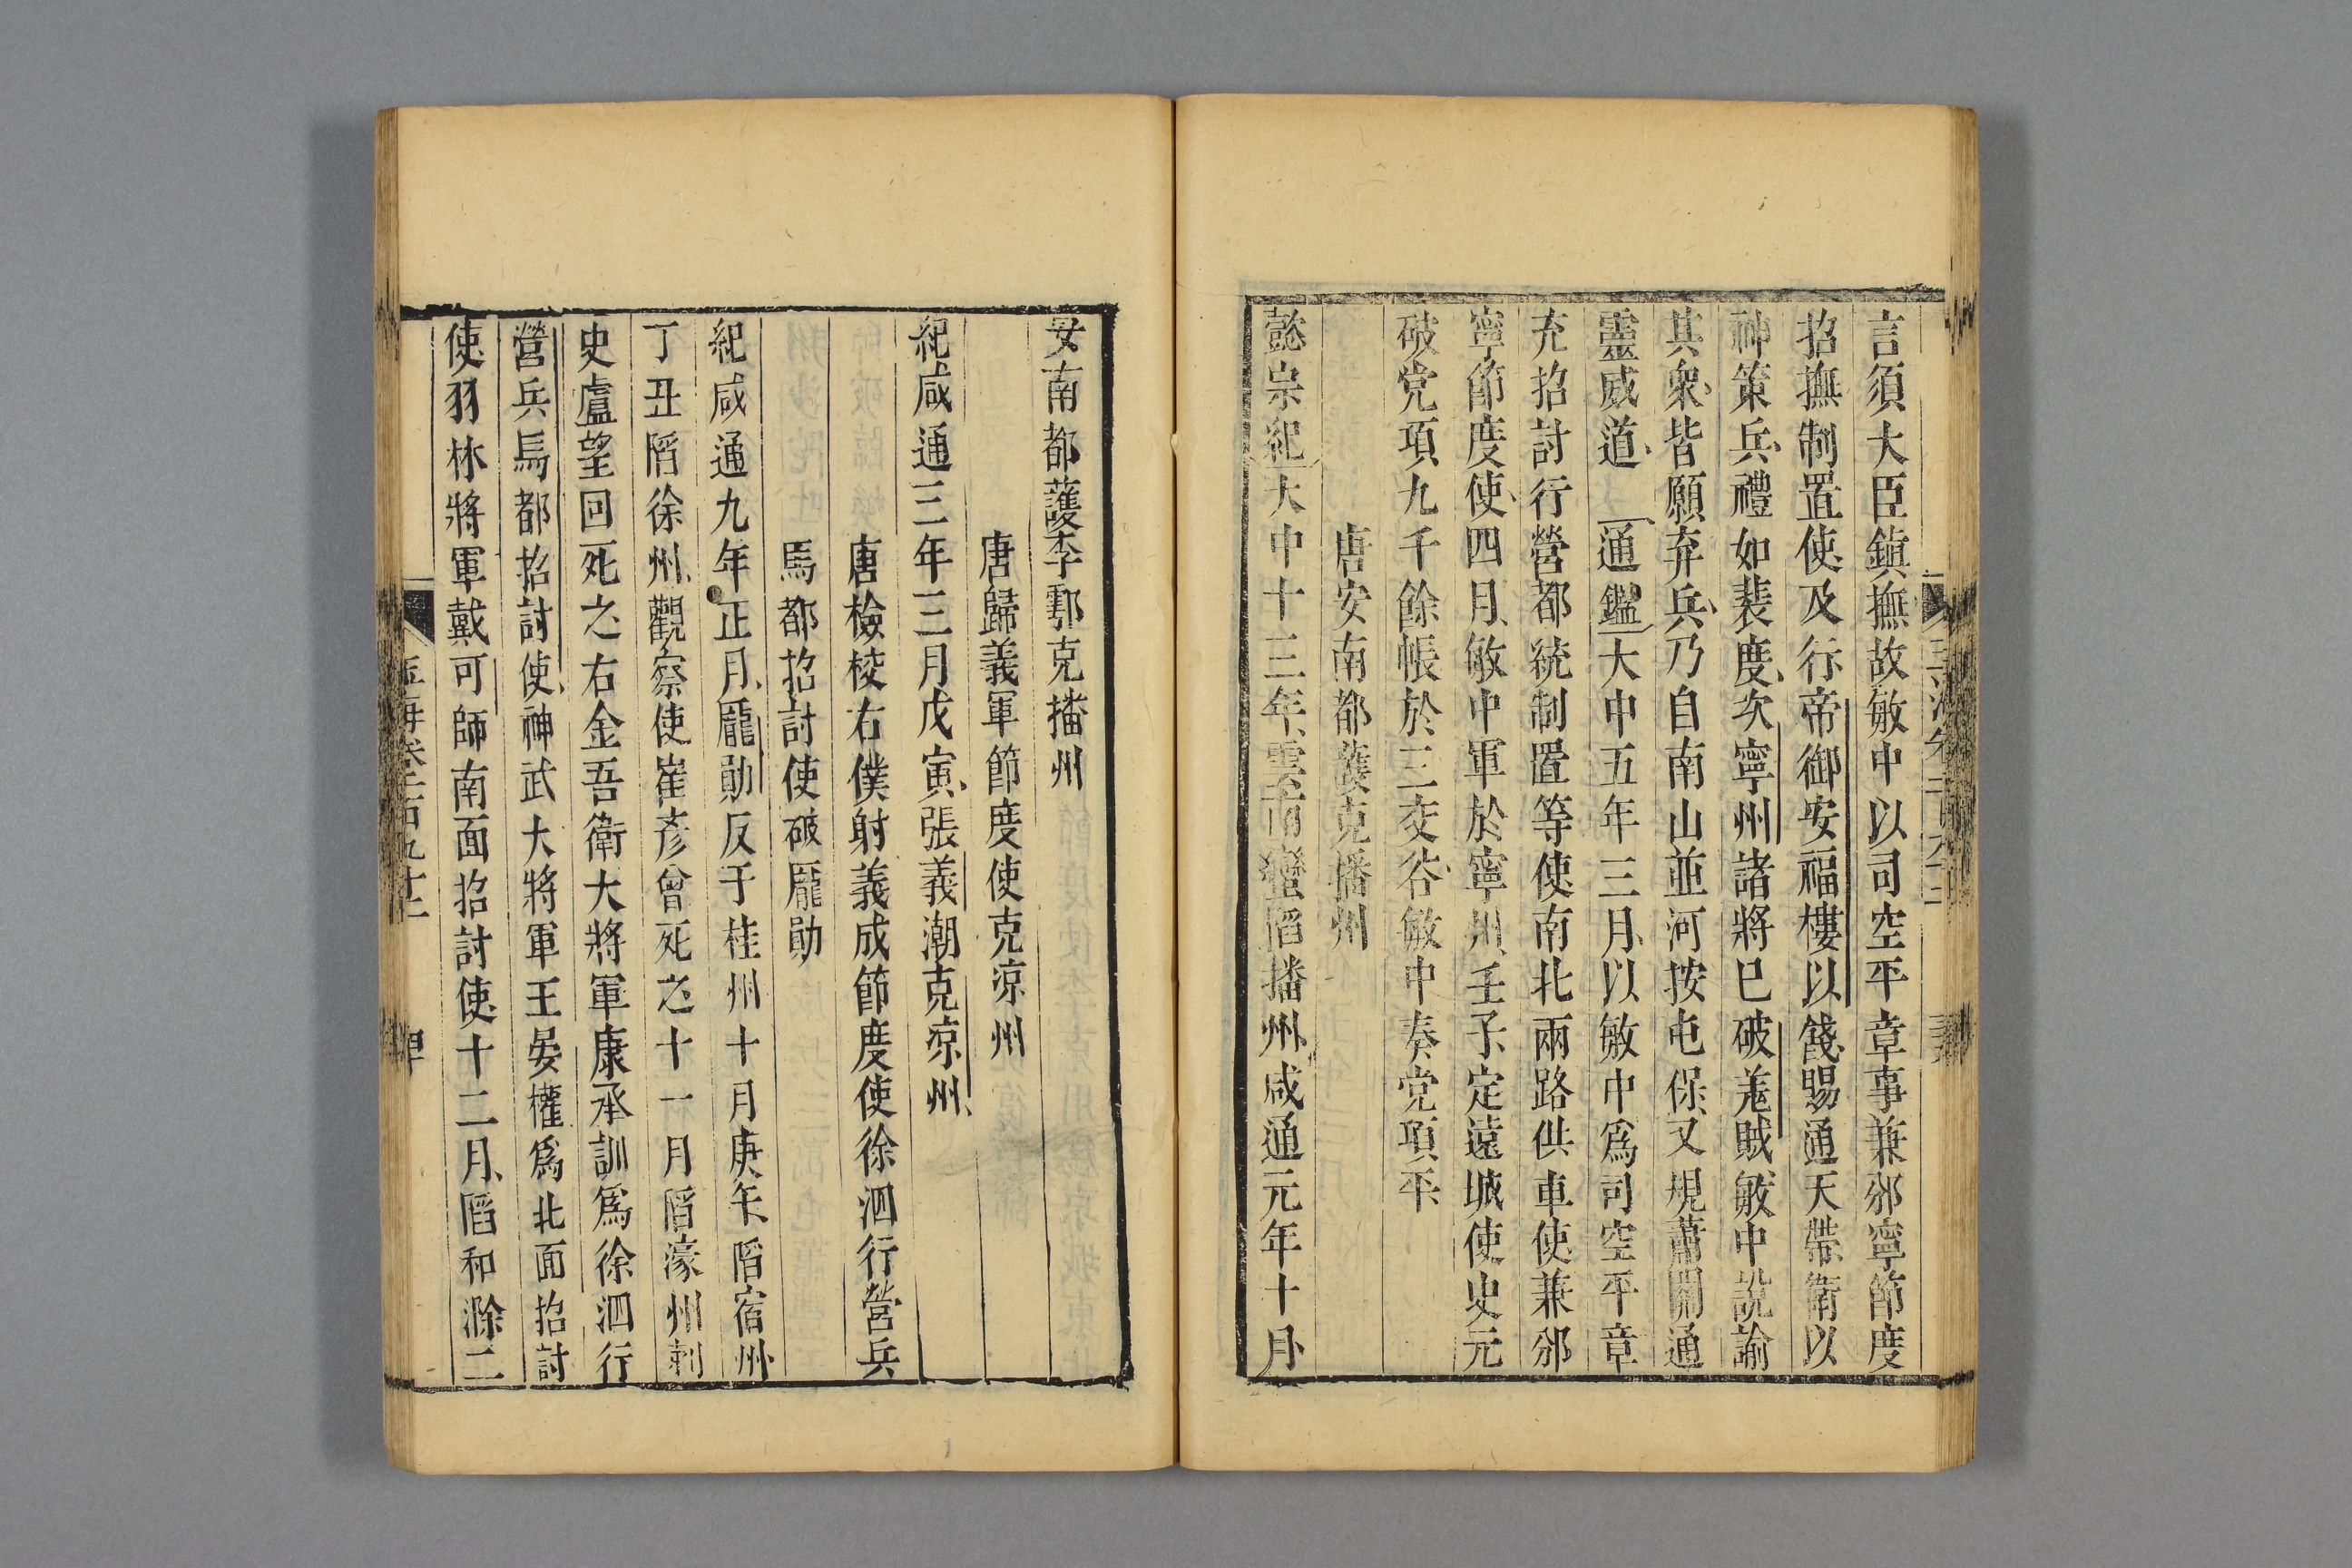 言須大臣鎮撫故敏中以司空平章事兼邠寧節度
招撫制置使及行帝御安福樓以餞賜通天帶衛以
神策兵禮如裴度次寧州諸將已破羗賊敏中說諭
其衆皆願弃兵乃自南山並河按屯保又規蕭關通
靈威道 通鑑大中五年三月以敏中爲司空平章
充招討行營都統制置等使南北兩路供車使兼邠
寧節度使四月敏中軍於寧州壬子定遠城使史元
破党項九千餘帳於三交谷敏中奏党項平
唐安南都護克播州
懿宗紀大中十三年雲南蠻陷播州咸通元年十月
安南都護李鄠克播州
唐歸義軍節度使克涼州
紀咸通三年三月戊寅張義潮克涼州
唐檢校右僕射義成節度使徐泗行營兵
馬都招討使破龎勛
紀咸通九年正月龎勛反于桂州十月庚午陷宿州
丁丑陷徐州觀察使崔彥曾死之十一月陷濠州刺
史盧望回死之右金吾衛大將軍康承訓爲徐泗行
營兵馬都招討使神武大將軍王晏權爲北面招討
使羽林將軍戴可師南面招討使十二月陷和滁二